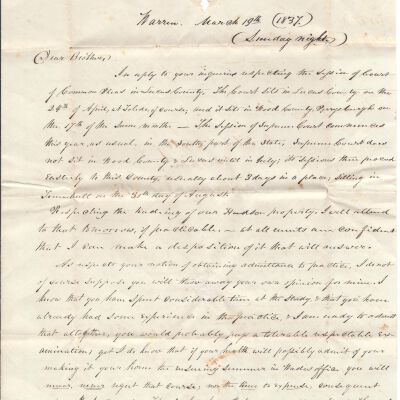 Warren, March 19th (1837.)
(Sunday night,)
(Dear Brother,)
In reply to your inquiries respecting the Session of Court
of Common Pleas in Lucas County. The Court sits in Lucas County on the
24th of April, at Toledo of course, and it sits in Wood County, Perrysburgh on
the 17th of the same month — The Session of Supreme Court commences
this year, as usual, in the South part of the State, Supreme Court does
not sit in Wood County & Lucas until in July; its Sessions then proceed
Easterly to this County, usually about 3 days in a place, sitting in
Trumbull on the 30th day of August.
Respecting the of our Hudson property, I will attend
to that tomorrow, if practicable. — at all events am confident
that I can make a disposition of it that will answer.
As respects your notion of obtaining admittance to practice, I do not
of course suppose you will throw away your own opinion for mine. I
know that you have spent considerable time at the Study, & that you have
already had some experience in the practice, & I am ready to admit
that altogether, you would probably a tolerable respectable ex-
amination; yet I do know that if your health will possibly admit of your
making it your home the ensuing summer in Wades office you will
never, never regret that course, nor the time or expense, consequent